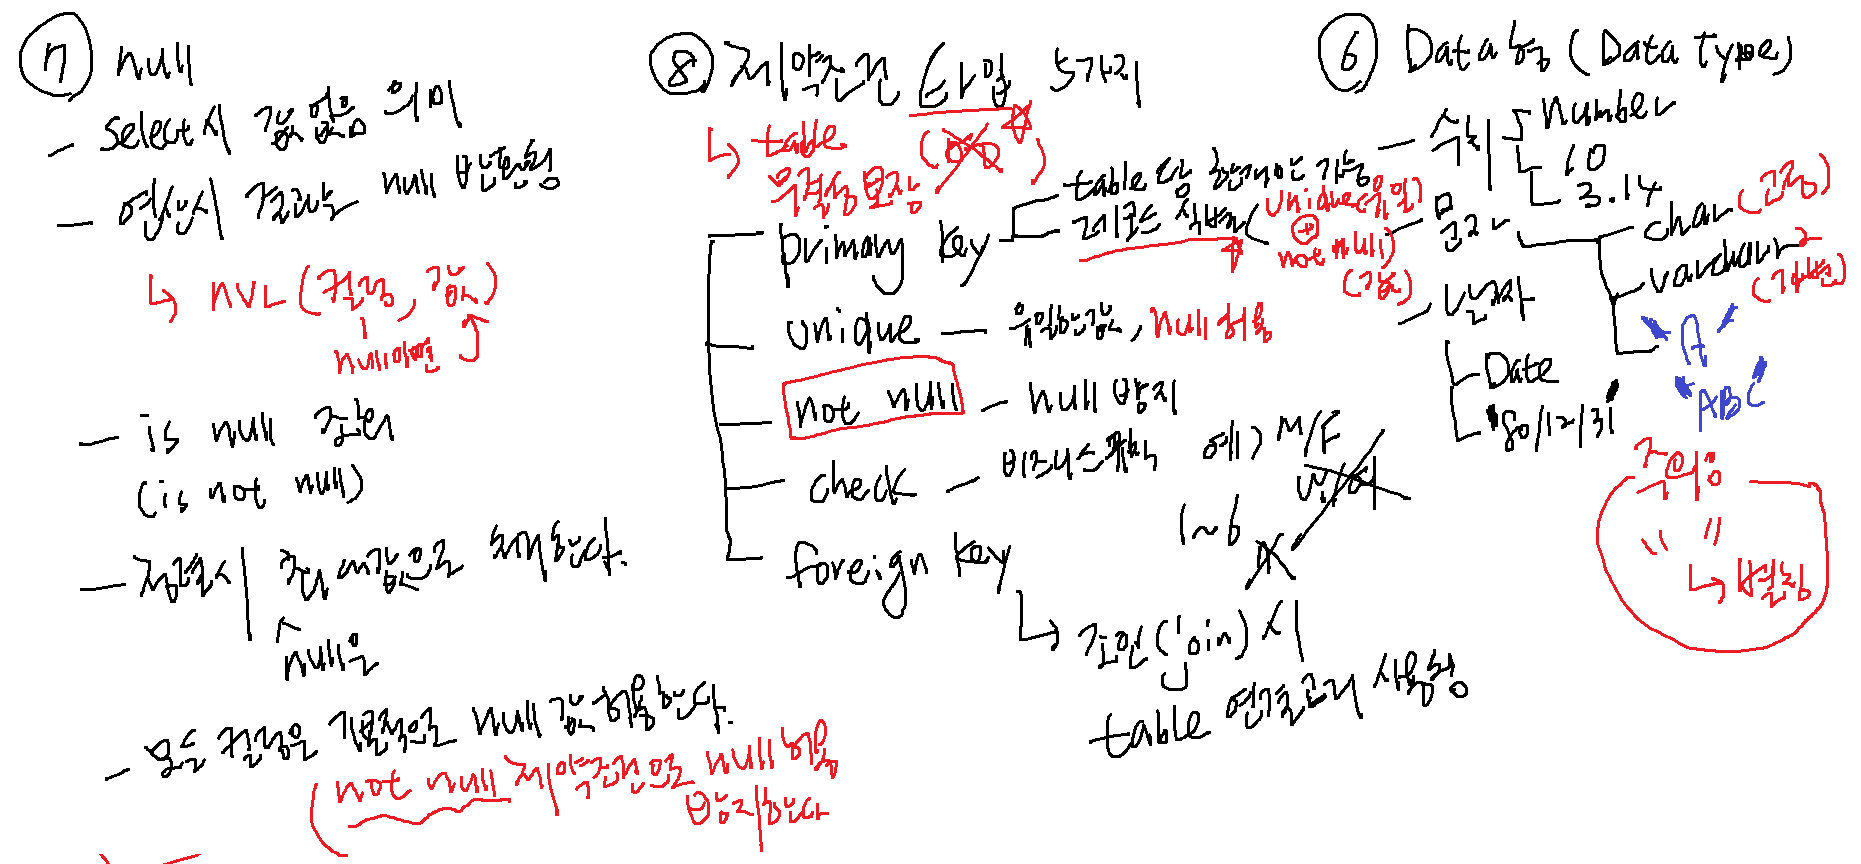 ⑦ null
- select시 값없음 의미
- 연산시 결과는 null 반환함
↳ NVL(컬럼, 값)
null이면
- is null 조회
(is not null)
- 정렬시 최대값으로 취급한다.
null은
- 모든 컬럼은 기본적으로 null값 허용한다.
(not null 제약조건으로 null 허용
방지한다
⑧ 제약조건 타입 5가지
↳ table
무결성 보장
primary key
table당 한개만 가능
레코드 식별 (unique(유일)
+
not null)
unique - 유일한값, null허용
not null - null 방지
check - 비즈니스규칙 예) M/F
1~6
foreign key
↳ 조인(join)시
table 연결고리 사용함
⑥ Data형 (Data Type)
- 수치
number
10
3.14
- 문자
char(고정)
varchar2
(가변)
'A'
'ABC'
- 날짜
Date
'80/12/31'
주의
" "
↳ 별칭